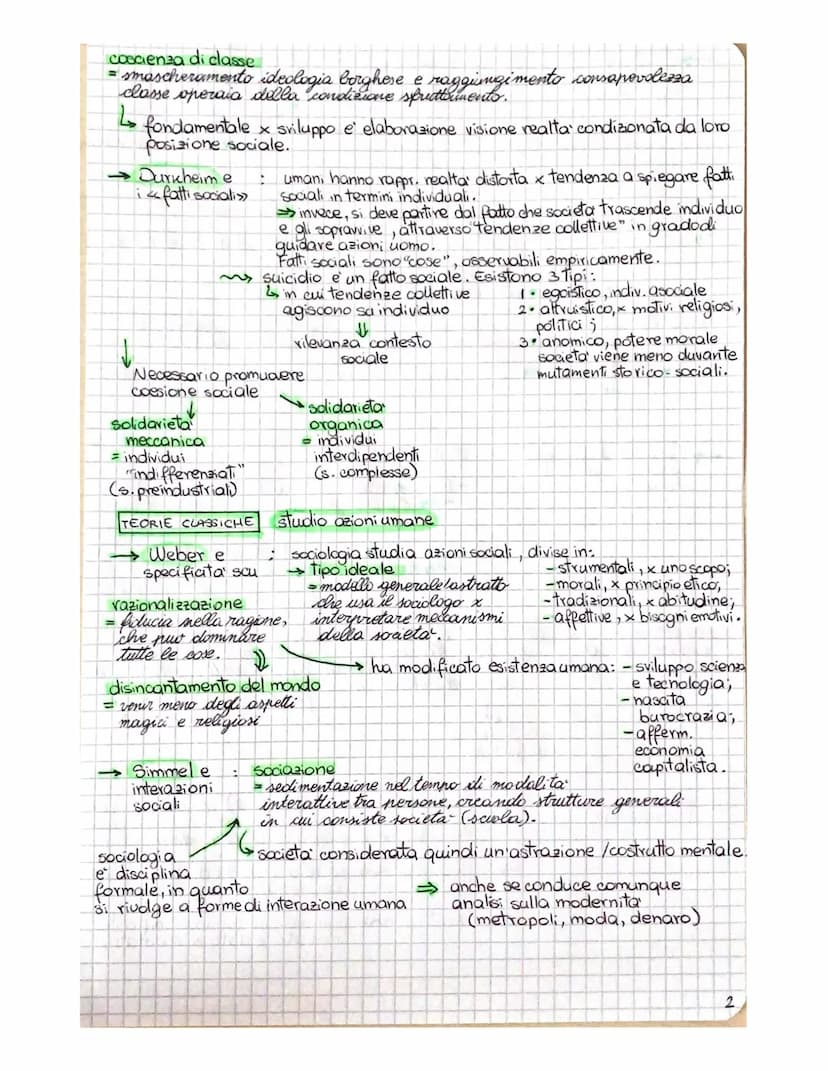 coscienza di classe
= smascheramento ideologia borghese e raggiungimento consapevolezza
classe operaia della condizione sfruttamento.
↳ fondamentale x sviluppo e' elaborazione visione realta' condizonata da loro
posizione sociale.
→ Durkheim e : umani hanno rappr. realta' distorta x tendenza a spiegare fatti
i «fatti sociali» sociali in termini individuali.
⇒ invece, si deve partire dal fatto che societa' trascende individuo
e gli sopravvive, attraverso "tendenze collettive" in grado di
guidare azioni uomo.
Fatti sociali sono "cose", osservabili empiricamente.
suicidio e' un fatto sociale. Esistono 3 tipi:
↳ in cui tendenze collettive
agiscono su individuo
⇓
rilevanza contesto
sociale
1• egoistico, indiv. asociale
2• altruistico, x motivi religiosi,
politici;
3• anomico, potere morale
societa' viene meno durante
mutamenti storico-sociali.
↓
Necessario promuovere
coesione sociale
solidarieta'
meccanica
= individui
"indifferenziati"
(s. preindustriali)
solidarieta'
organica
= individui
interdipendenti
(s. complesse)
TEORIE CLASSICHE studio azioni umane
→ Weber e : sociologia studia azioni sociali, divise in:
specificita' scu
→ tipo ideale
= modello generale/astratto
che usa il sociologo x
interpretare meccanismi
della societa'.
- strumentali, x uno scopo;
- morali, x principio etico;
- tradizionali, x abitudine;
- affettive, x bisogni emotivi.
razionalizzazione
= fiducia nella ragione,
che puo' dominare
tutte le cose.
⇓
→ ha modificato esistenza umana: - sviluppo scienza
e tecnologia;
- nascita
burocrazia;
- afferm.
economia
capitalista.
disincantamento del mondo
= venir meno degli aspetti
magici e religiosi
→ Simmel e : sociazione
interazioni
sociali
= sedimentazione nel tempo di modalita'
interattive tra persone, creando strutture generali
in cui consiste societa' (scuola).
↳ societa' considerata quindi un'astrazione/costrutto mentale.
sociologia
e' disciplina
formale, in quanto
si rivolge a forme di interazione umana
⇒ anche se conduce comunque
analisi sulla modernita'
(metropoli, moda, denaro)
2